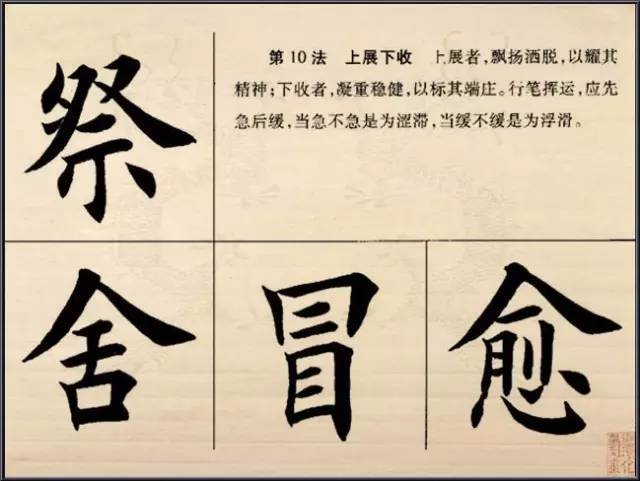 第10法 上展下收 上展者,飘扬洒脱,以耀其
精神;下收者,凝重稳健,以标其端庄。行笔挥运,应先
急后缓,当急不急是为涩滞,当缓不缓是为浮滑。
祭
舍 冒 愈